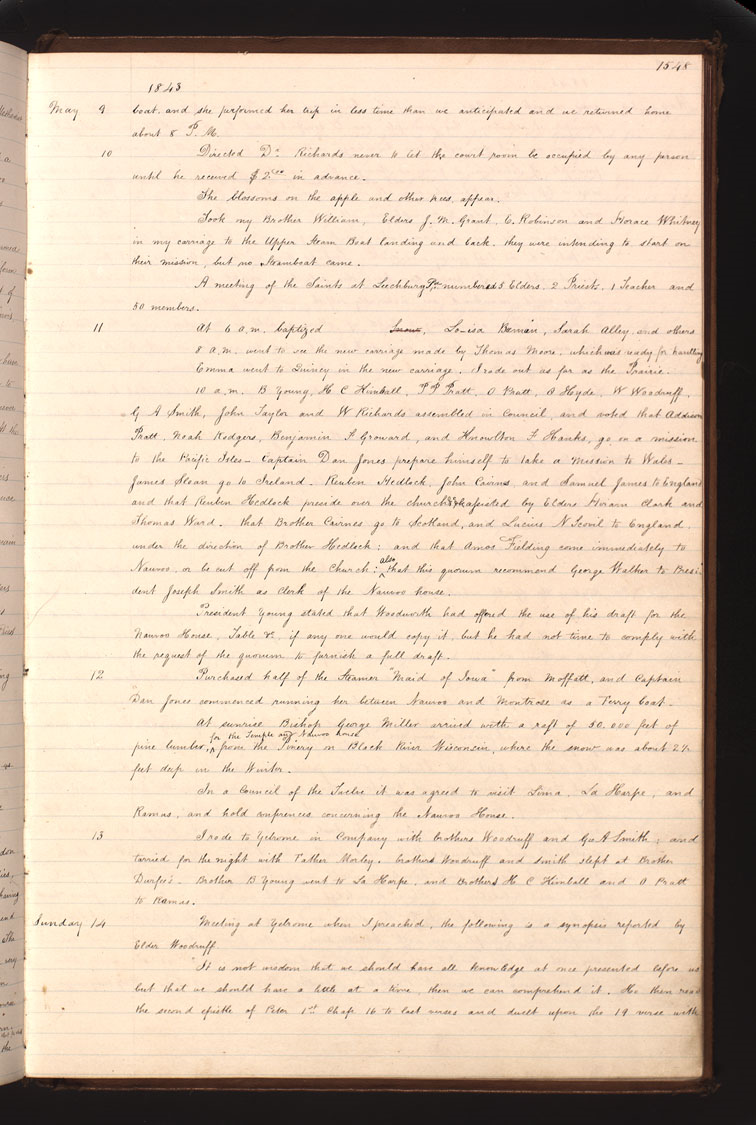 1548
1843
May 9 boat. and she performed her trip in less time than we anticipated and we returned home
about 8 P. M.
10 Directed Dr. Richards never to let the court room be occupied by any person
until he received $2.00 in advance.
The blossoms on the apple and other trees, appear.
Took my Brother William, Elders J. M. Grant, E. Robinson and Horace Whitney
in my carriage to the Upper Steam Boat landing and back. they were intending to start on
their mission, but no steamboat came.
A meeting of the Saints at Leechburg Pa. numbered 5 Elders. 2 Priests. 1 Teacher and
30 members.
11 At 6 a.m. baptized Lo-isa Beman, Sarah Alley, and others
8 A.M. went to see the new carriage made by Thomas Moore, which was ready for travelling
Emma went to Quincy in the new carriage. I rode out as far as the Prairie.
10 a.m. B Young, H C Kimball, P P Pratt, O Pratt, O Hyde, W Woodruff,
G A Smith, John Taylor and W Richards assembled in Council, and voted that Addison
Pratt, Noah Rodgers, Benjamin F. Grouard, and Knowlton F. Hanks, go on a mission
to the Pacific Isles - Captain Dan Jones prepare himself to take a mission to Wales -
James Sloan go to Ireland. Reuben Hedlock, John Cairns, and Samuel James to England
and that Reuben Hedlock preside over the church assisted by Elders Hiram Clark and
Thomas Ward. that Brother Cairnes go to Scotland, and Lucius N. Scovil to England
under the direction of Brother Hedlock: and that Amos Fielding come immediately to
Nauvoo, or be cut off from the Church: also that this quorum recommend George Walker to Presi-
dent Joseph Smith as Clerk of the Nauvoo house.
President Young stated that Woodworth had offered the use of his draft for the
Nauvoo House, Table &c, if any one would copy it, but he had not time to comply with
the request of the quorum to furnish a full draft.
12 Purchased half of the steamer "Maid of Iowa" from Moffatt, and Captain
Dan Jones commenced running her between Nauvoo and Montrose as a Ferry boat.
At sunrise Bishop George Miller arrived with a raft of 50,000 feet of
pine lumber, for the Temple and Nauvoo house from the Pinery on Black River Wisconsin, where the snow was about 2½
feet deep in the Winter.
In a Council of the Twelve it was agreed to visit Lima, La Harpe, and
Ramus, and hold conferences concerning the Nauvoo House.
13 I rode to Yelrome in Company with brothers Woodruff and Geo. A Smith; and
tarried for the night with Father Morley. brothers Woodruff and Smith slept at Brother
Durfee's - Brother B Young went to La Harpe, and Brothers H. C Kimball and O Pratt
to Ramus.
Sunday 14 Meeting at Yelrome when I preached, the following is a synopsis reported by
Elder Woodruff.
"It is not wisdom that we should have all knowledge at once presented before us
but that we should have a little at a time, then we can comprehend it. He then read
the second epistle of Peter 1st Chap. 16 to last verses and dwelt upon the 19 verse with